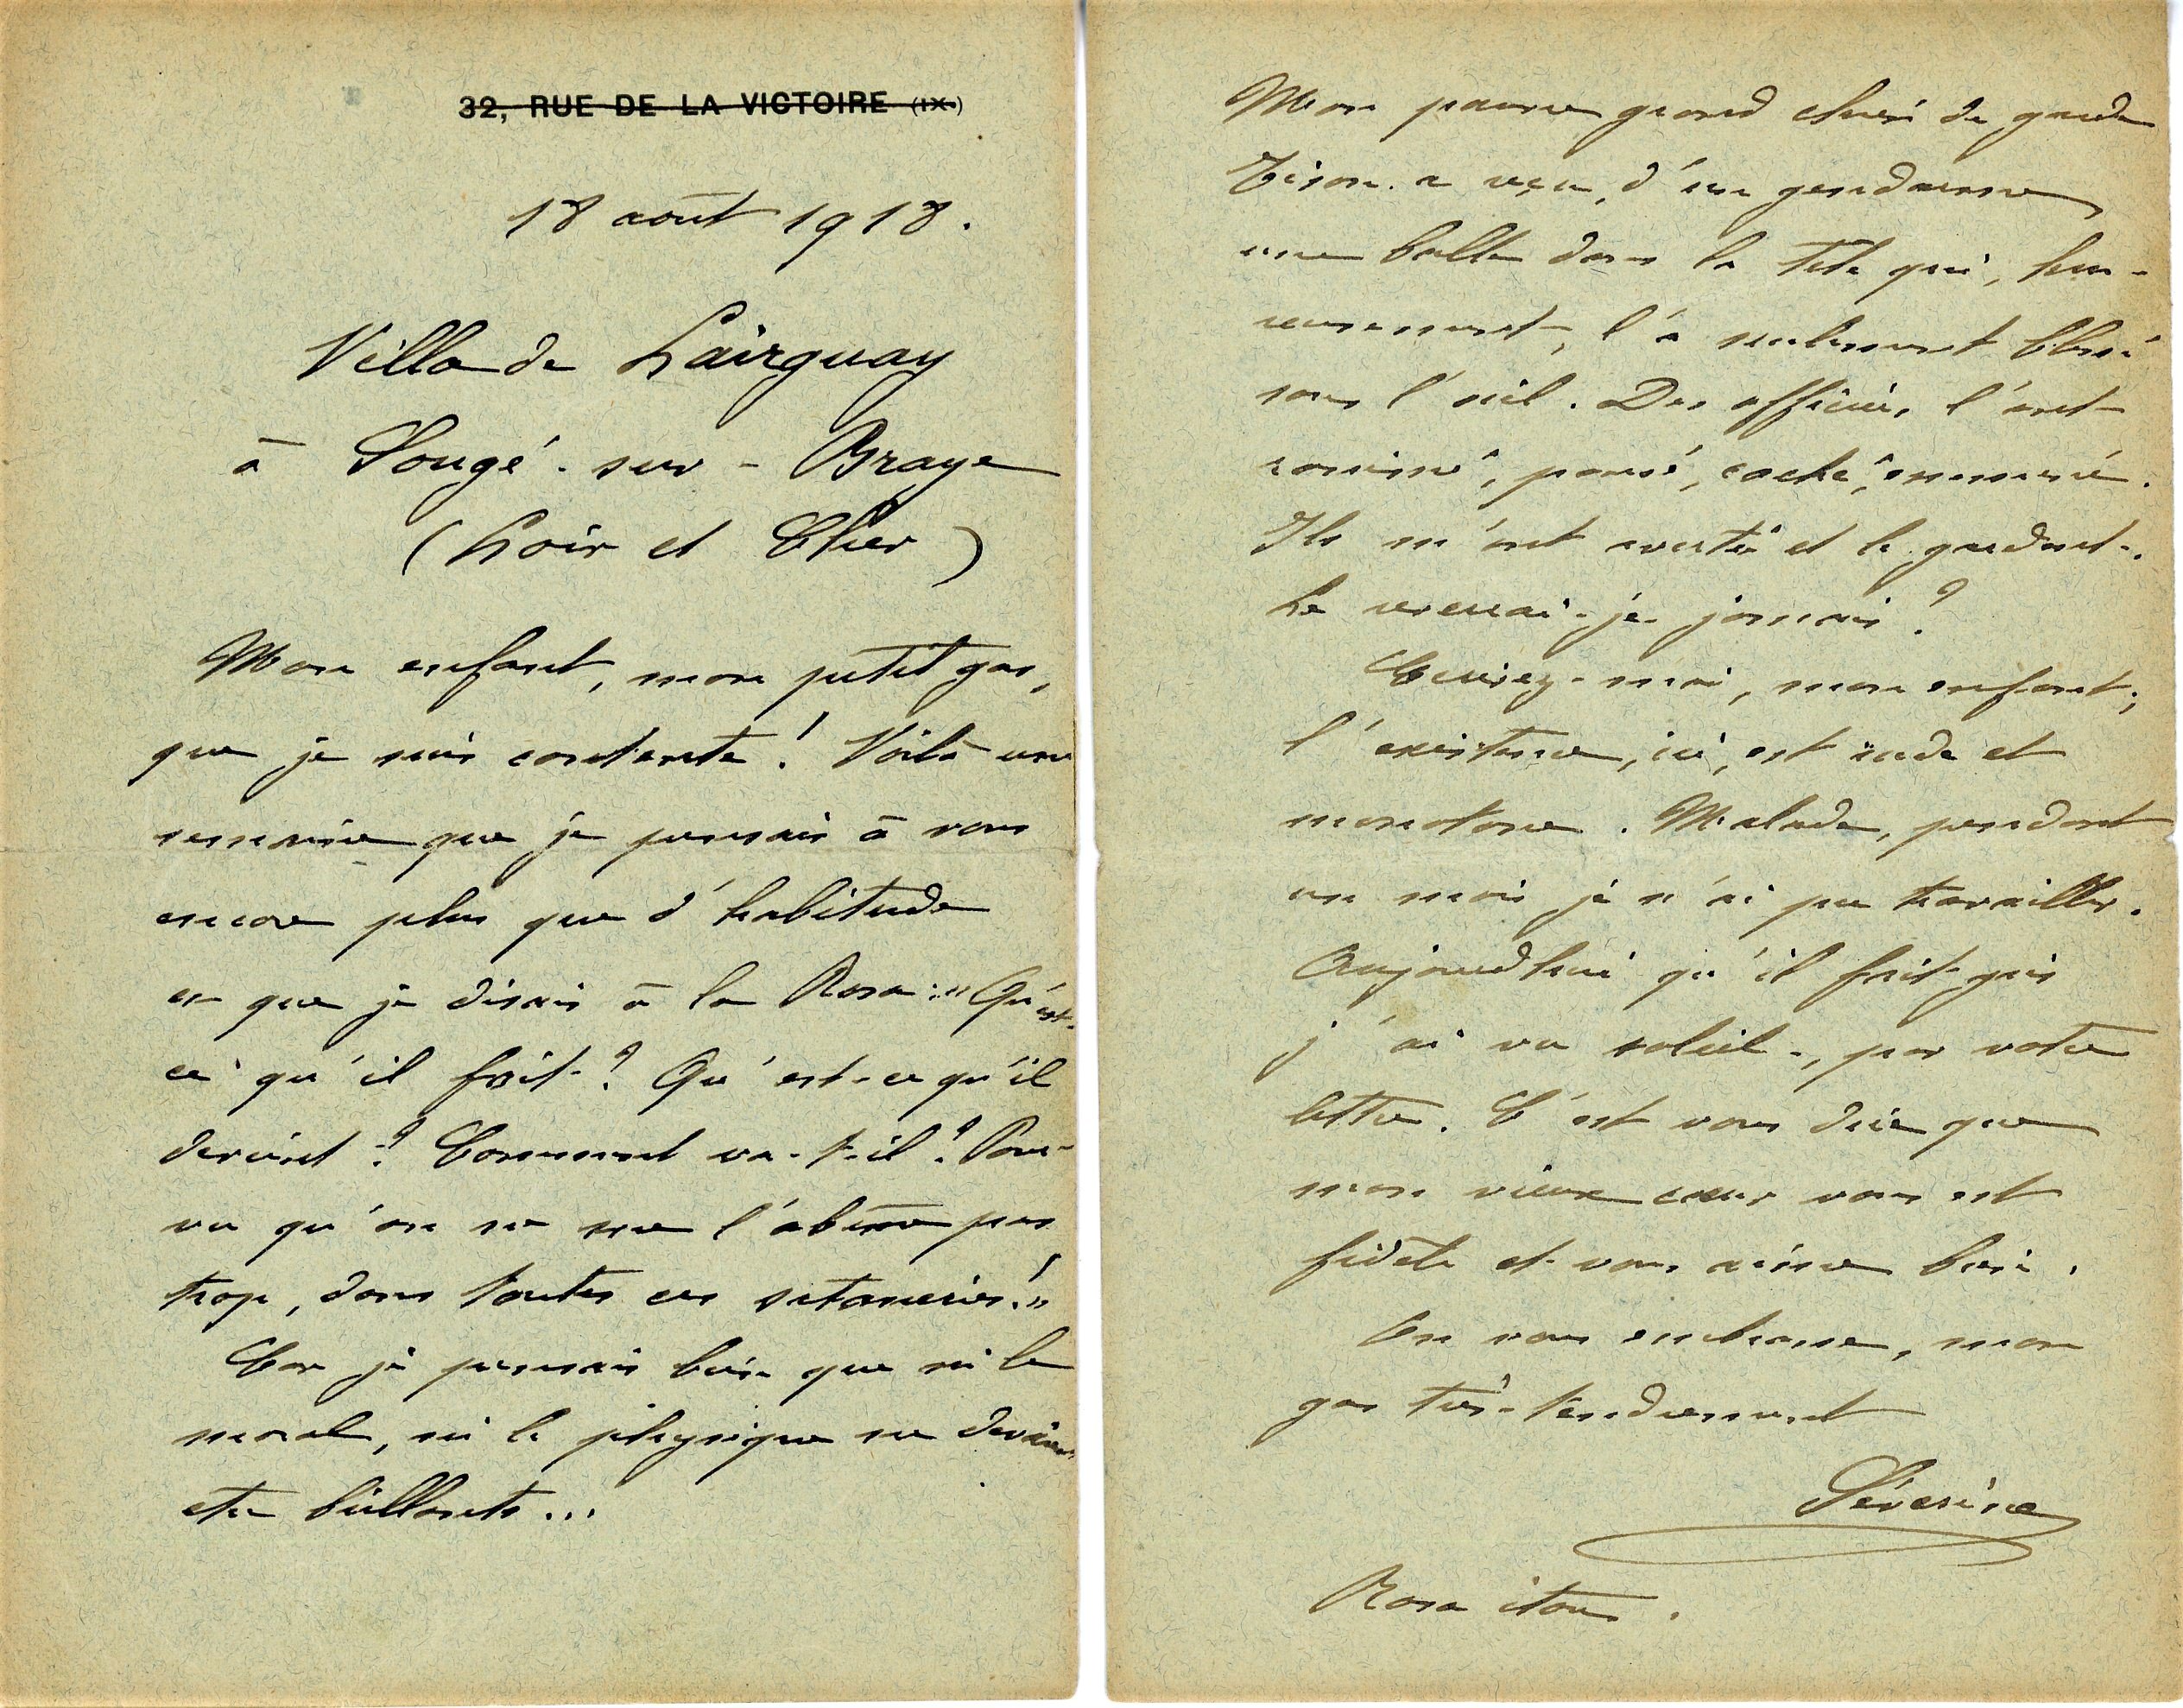 32, RUE DE LA VICTOIRE (IXe)
18 août 1918.
Villa de Lairguay
à Sougé-sur-Braye
(Loir et Cher)
Mon enfant, mon petit gas,
que je suis contente ! Voilà une
semaine que je pensais à vous
encore plus que d'habitude
et que je disais à la Rosa : « Qu'est-
ce qu'il fait ? Qu'est-ce qu'il
devient ? Comment va-t-il ? Pour-
vu qu'on ne me l'abîme pas
trop, dans toutes ces sataneries ! »
Car je pensais bien que ni le
moral, ni le physique ne devaient
être brillants...
Mon pauvre grand chien de garde
Tison a reçu, d'un gendarme,
une balle dans la tête qui, heu-
reusement, l'a seulement blessé
sous l'œil. Des officiers l'ont
ranimé, pansé, caché, emmené.
Ils m'ont avertie et le gardent.
Le reverrai-je jamais ?
Ecrivez-moi, mon enfant ;
l'existence, ici, est rude et
monotone. Malade, pendant
un mois je n'ai pu travailler.
Aujourd'hui qu'il fait gris
j'ai vu soleil, par votre
lettre. C'est vous dire que
mon vieux cœur vous est
fidèle et vous aime bien.
On vous embrasse, mon
gas très-tendrement
Séverine
Rosa itou.